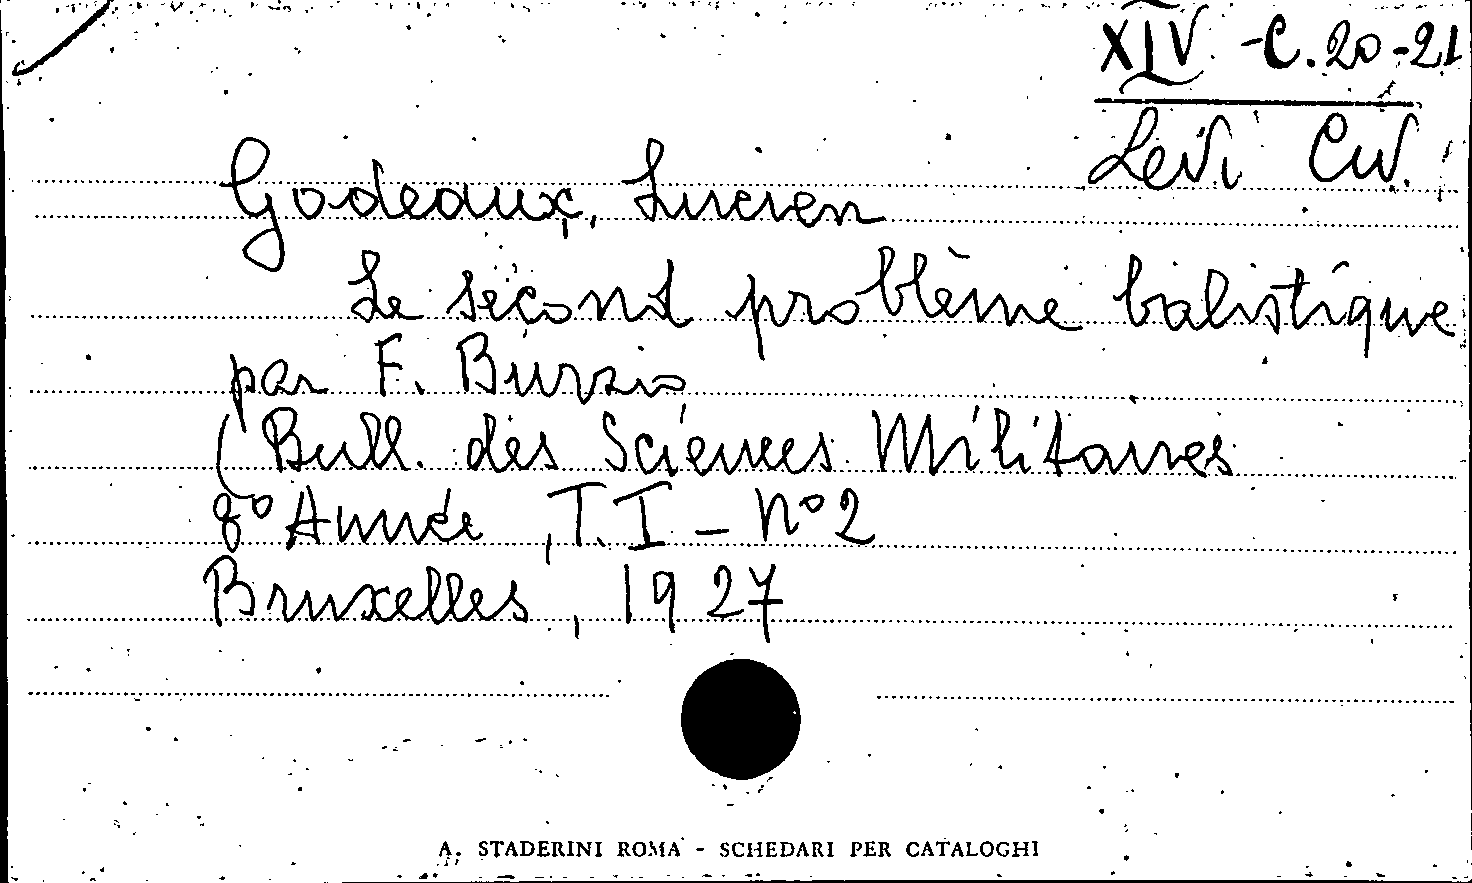 XLV - C. 20-21
Levi Civ.
Godeaux, Lucien
Le second problème balistique
par F. Burzio
(Bull. des Sciences Militaires
8° Année, T. I - N° 2
Bruxelles, 1927
A. STADERINI ROMA - SCHEDARI PER CATALOGHI